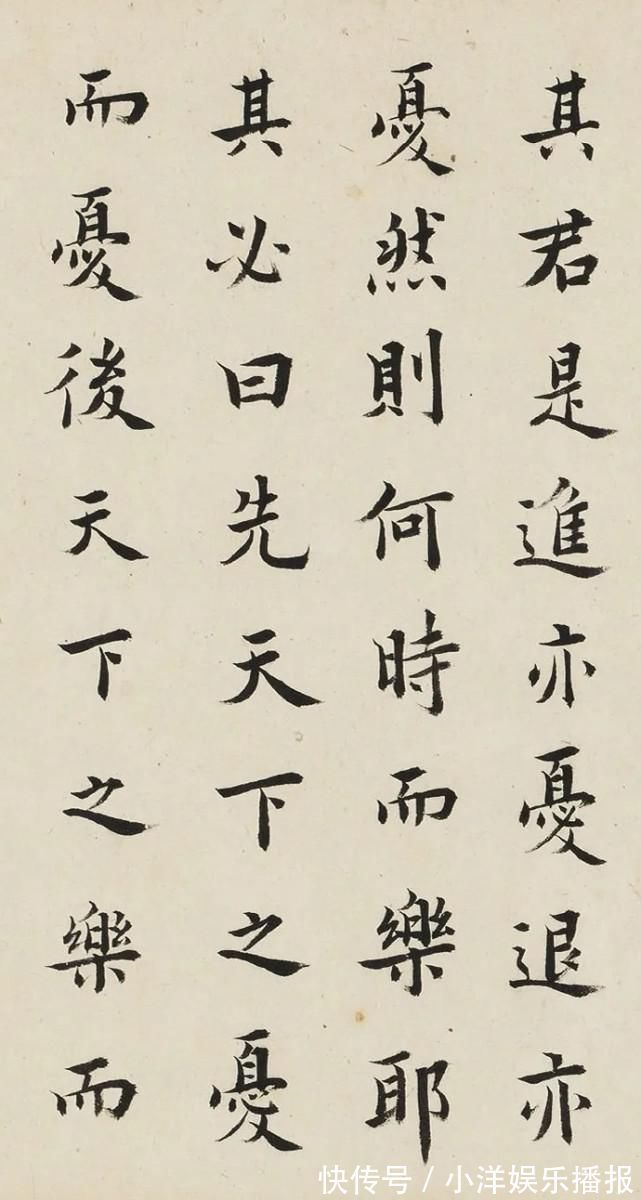 其君是進亦憂退亦
憂然則何時而樂耶
其必曰先天下之憂
而憂後天下之樂而
快传号 / 小洋娱乐播报